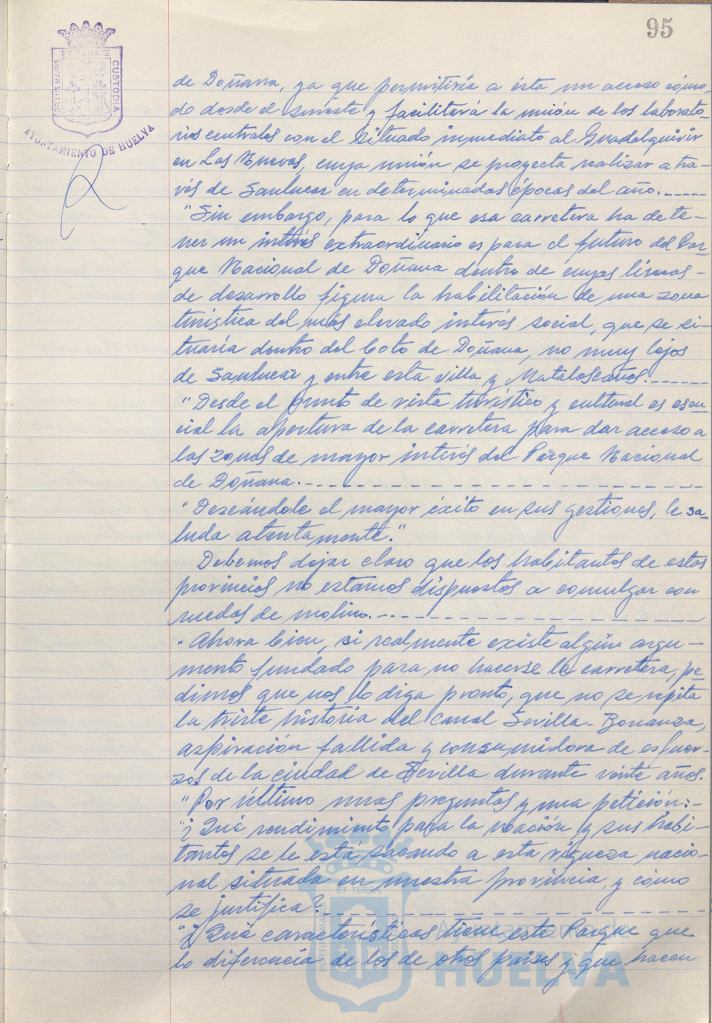 95
PORTUS MARIS ET TERRE CUSTODIA
AYUNTAMIENTO DE HUELVA
de Doñana, ya que permitiría a ésta un acceso cómo-
do desde el sureste y facilitará la unión de los laborato-
rios centrales con el situado inmediato al Guadalquivir
en Las Nuevas, cuya unión se proyecta realizar a tra-
vés de Sanlucar en determinadas épocas del año.-----
"Sin embargo, para lo que esa carretera ha de te-
ner un interés extraordinario es para el futuro del Par-
que Nacional de Doñana dentro de cuyas líneas-
de desarrollo figura la habilitación de una zona
turística del más elevado interés social, que se si-
tuaría dentro del Coto de Doñana, no muy lejos
de Sanlucar y entre esta villa y Matalascañas.-----
"Desde el punto de vista turístico y cultural es esen-
cial la apertura de la carretera para dar acceso a
las zonas de mayor interés del Parque Nacional
de Doñana.---------------
"Deseándole el mayor éxito en sus gestiones, le sa-
luda atentamente."
Debemos dejar claro que los habitantes de estas
provincias no estamos dispuestos a comulgar con
ruedas de molino.---------------
"Ahora bien, si realmente existe algún argu-
mento fundado para no hacerse la carretera, pe-
dimos que nos lo diga pronto, que no se repita
la triste historia del canal Sevilla-Bonanza,
aspiración fallida y consumidora de esfuer-
zos de la ciudad de Sevilla durante veinte años.
"Por último unas preguntas y una petición:-
"¿Qué rendimiento para la nación y sus habi-
tantes se le está sacando a esta riqueza nacio-
nal situada en nuestra provincia, y cómo
se justifica?---------------
"¿Qué características tiene este Parque que
lo diferencia de los de otros países y que hacen
HUELVA